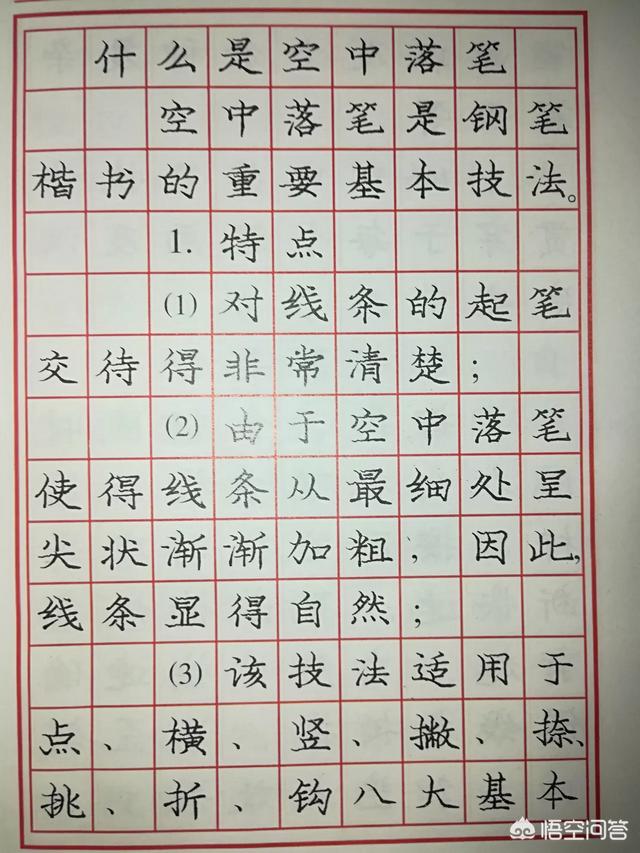 什么是空中落笔
空中落笔是钢笔
楷书的重要基本技法。
1.特点
(1)对线条的起笔
交待得非常清楚;
(2)由于空中落笔
使得线条从最细处呈
尖状渐渐加粗,因此,
线条显得自然;
(3)该技法适用于
点、横、竖、撇、捺、
挑、折、钩八大基本
悟空问答